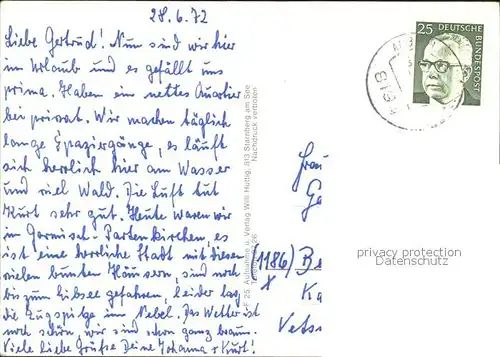 28.6.72
Liebe Gertrud! Nun sind wir hier
im Urlaub und es gefällt uns
prima. Haben ein nettes Quartier
bei privat. Wir machen täglich
lange Spaziergänge, es läuft
sich herrlich hier am Wasser
und viel Wald. Die Luft tut
Kurt sehr gut. Heute waren wir
in Garmisch-Partenkirchen, es
ist eine herrliche Stadt mit diesen
vielen bunten Häusern, sind noch
bis zum Eibsee gefahren, leider lag
die Zugspitze im Nebel. Das Wetter ist
noch schön, wir sind schon ganz braun.
Viele liebe Grüße Deine Johanna + Kurt!
F 25 Aufnahme u. Verlag Willi Huttig, 813 Starnberg am See
Nachdruck verboten
25
DEUTSCHE
BUNDESPOST
813
Frau
(1186) Be
X Ka
privacy protection
Datenschutz